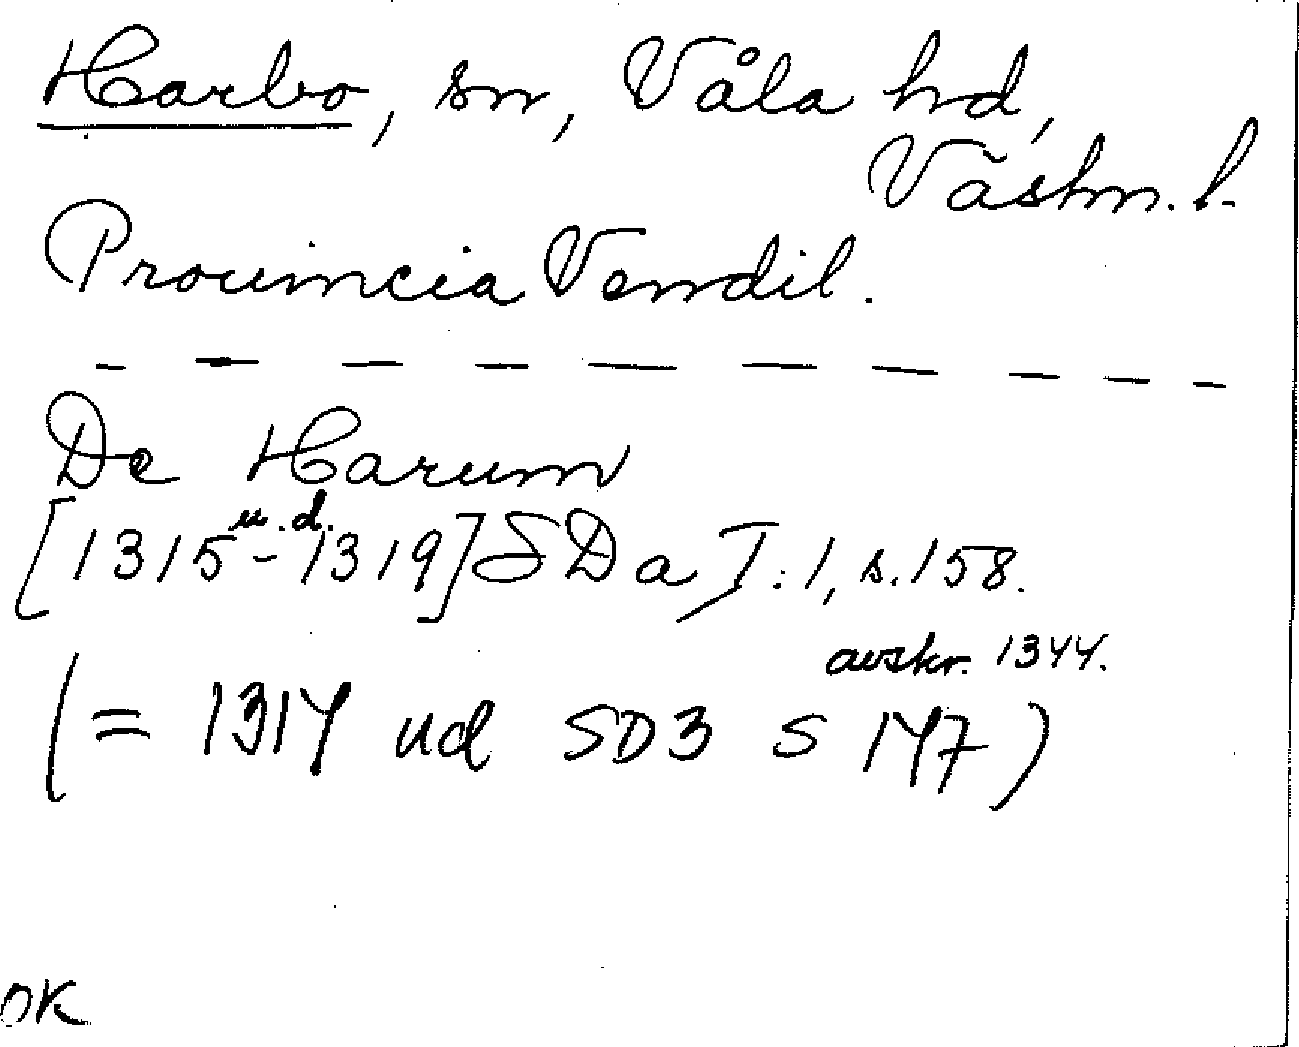 Harbo, sn, Våla hd,
Västm. l.
Prouincia Vendil.
— — — — — — — — — —
De Harum
[1315 - 1319] u.d. SDa I:1, s.158.
avskr. 1344.
(= 1314 ud SD3 s 147)
OK